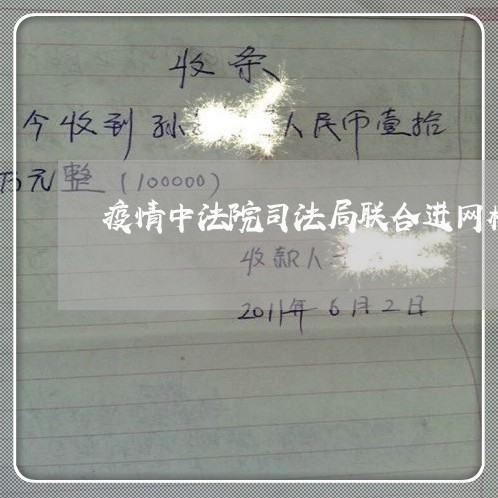 收条
今收到孙 人民币壹拾
万元整(100000)
疫情中法院司法局联合进网
收款人
2011年6月2日